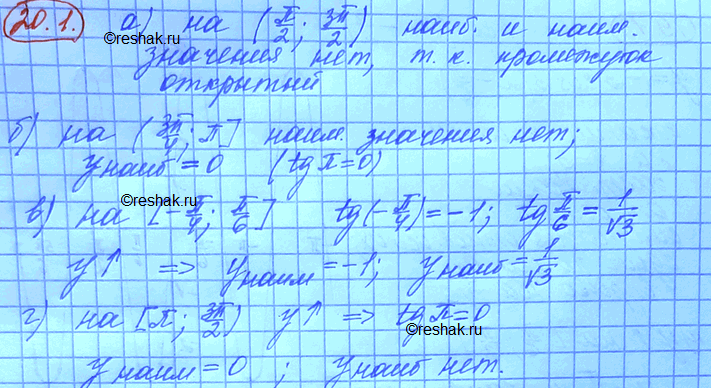 20.1. а) на (π/2; 3π/2) наиб. и наим.
©reshak.ru
значения нет, т. к. промежуток
открытый
б) на (3π/4; π] наим. значения нет;
yнаиб = 0 (tg π = 0)
©reshak.ru
в) на [-π/4; π/6] tg(-π/4) = -1; tg π/6 = 1/√3
y↑ => yнаим = -1; yнаиб = 1/√3
г) на [π; 3π/2) y↑ => tg π = 0
©reshak.ru
yнаим = 0 ; yнаиб нет.